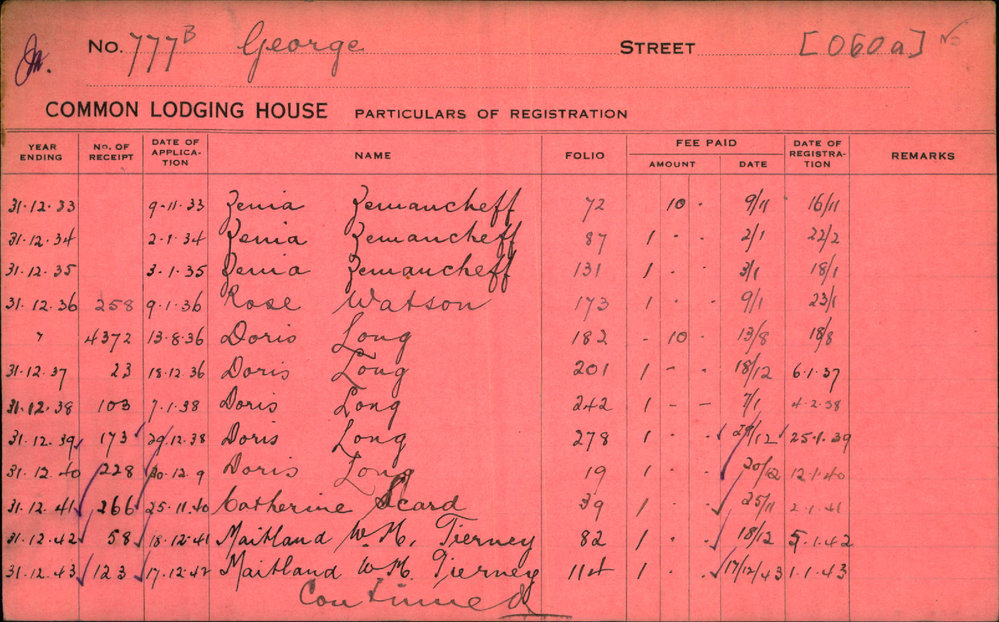 No. 777B George STREET [060a] No
COMMON LODGING HOUSE PARTICULARS OF REGISTRATION
YEAR ENDING No. OF RECEIPT DATE OF APPLICA-TION NAME FOLIO FEE PAID AMOUNT DATE DATE OF REGISTRA-TION REMARKS
31.12.33 9.11.33 Zenia Zemancheff 72 10 . 9/11 16/11
31.12.34 2.1.34 Zenia Zemancheff 87 1 . . 2/1 22/2
31.12.35 3.1.35 Zenia Zemancheff 131 1 . . 3/1 18/1
31.12.36 258 9.1.36 Rose Watson 173 1 . . 9/1 23/1
" 4372 13.8.36 Doris Long 182 - 10 . 13/8 18/8
31.12.37 23 18.12.36 Doris Long 201 1 - . 18/12 6.1.37
31.12.38 103 7.1.38 Doris Long 242 1 - - 7/1 4.2.38
31.12.39 173 29.12.38 Doris Long 278 1 . . 29/12 25.1.39
31.12.40 228 20.12.9 Doris Long 19 1 . . 20/12 12.1.40
31.12.41 266 25.11.40 Catherine Scard 39 1 . . 25/11 2.1.41
31.12.42 58 18.12.41 Maitland W.H. Tierney 82 1 . . 18/12 5.1.42
31.12.43 123 17.12.42 Maitland W.H. Tierney 114 1 . 17/12/43 1.1.43
Continued